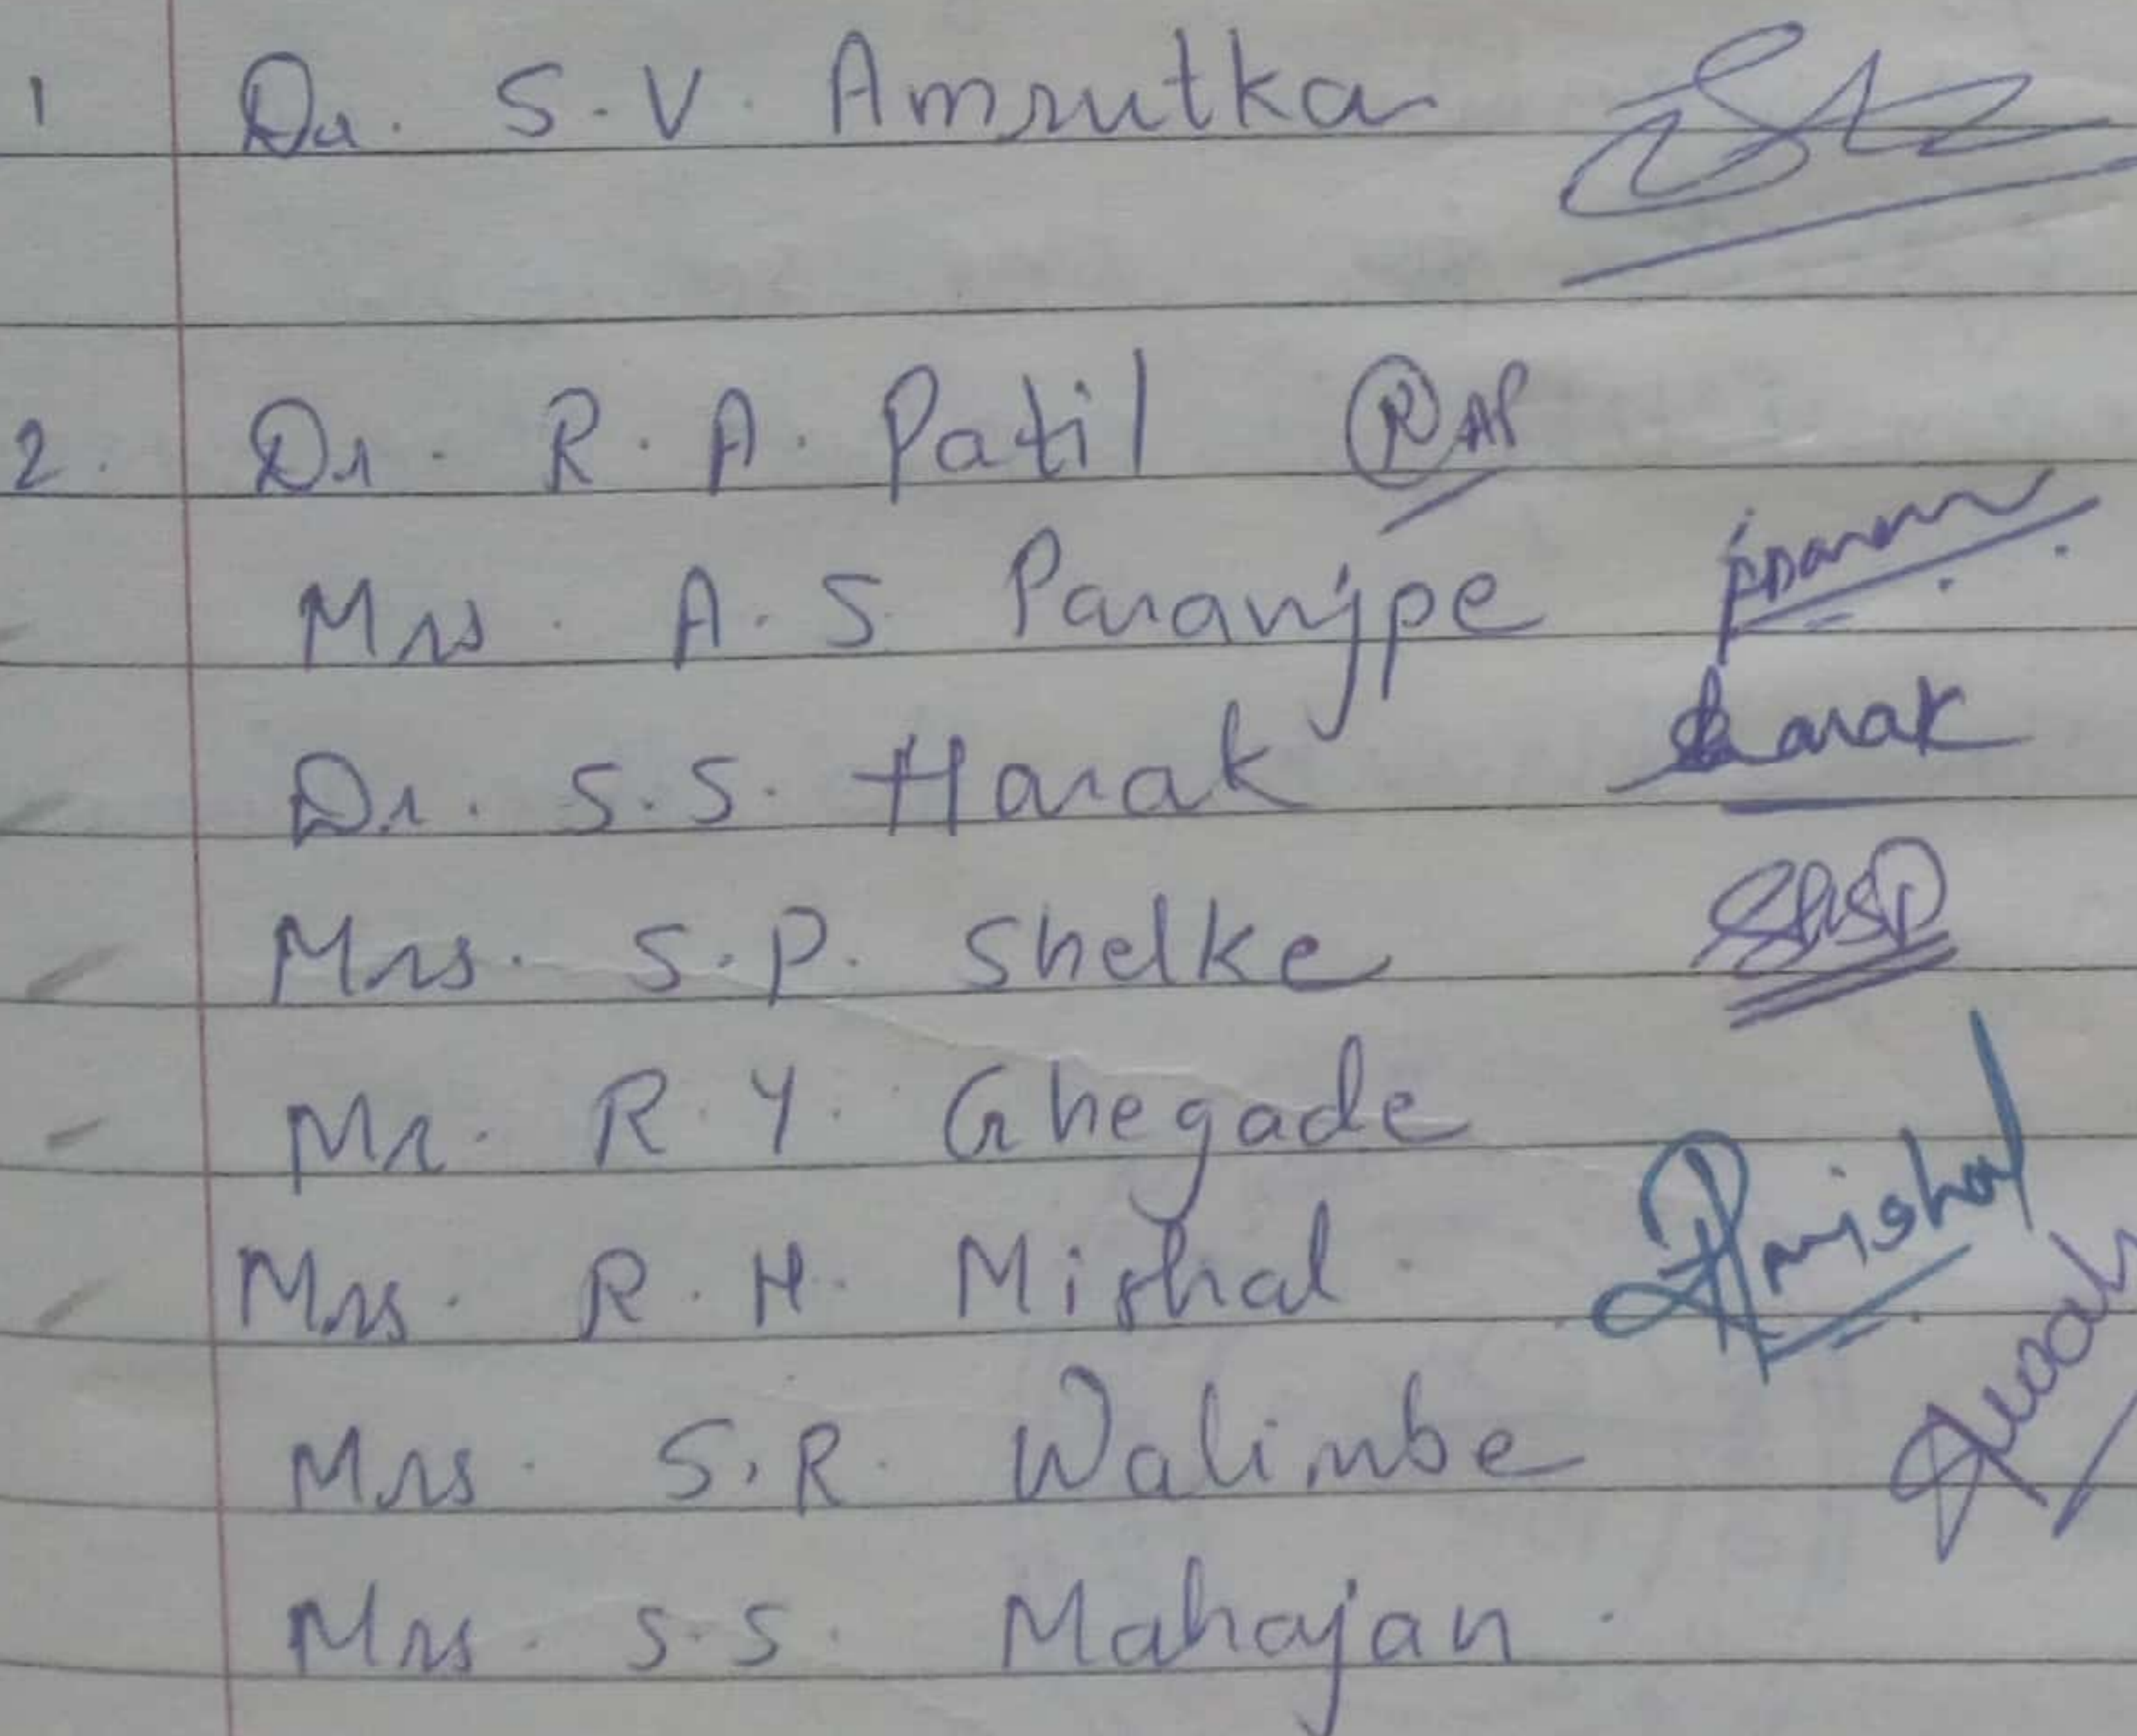 1 Dr. S.V. Amrutka
2. Dr. R.A. Patil RAP
Mrs. A.S Paranjpe
Dr. S.S. Harak Harak
Mrs. S.P. Shelke
Mr. R.Y. Ghegade
Mrs. R.H. Mishal Rmishal
Mrs. S.R. Walimbe
Mrs. S.S. Mahajan.